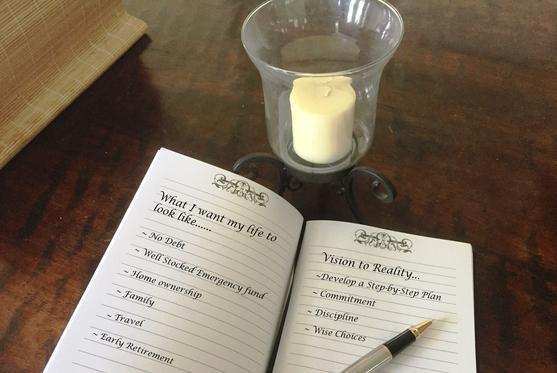 What I want my life to
look like......
~ No Debt
~ Well Stocked Emergency fund
~ Home ownership
~ Family
~ Travel
~ Early Retirement
Vision to Reality...
~Develop a Step-by-Step Plan
~ Commitment
~ Discipline
~ Wise Choices